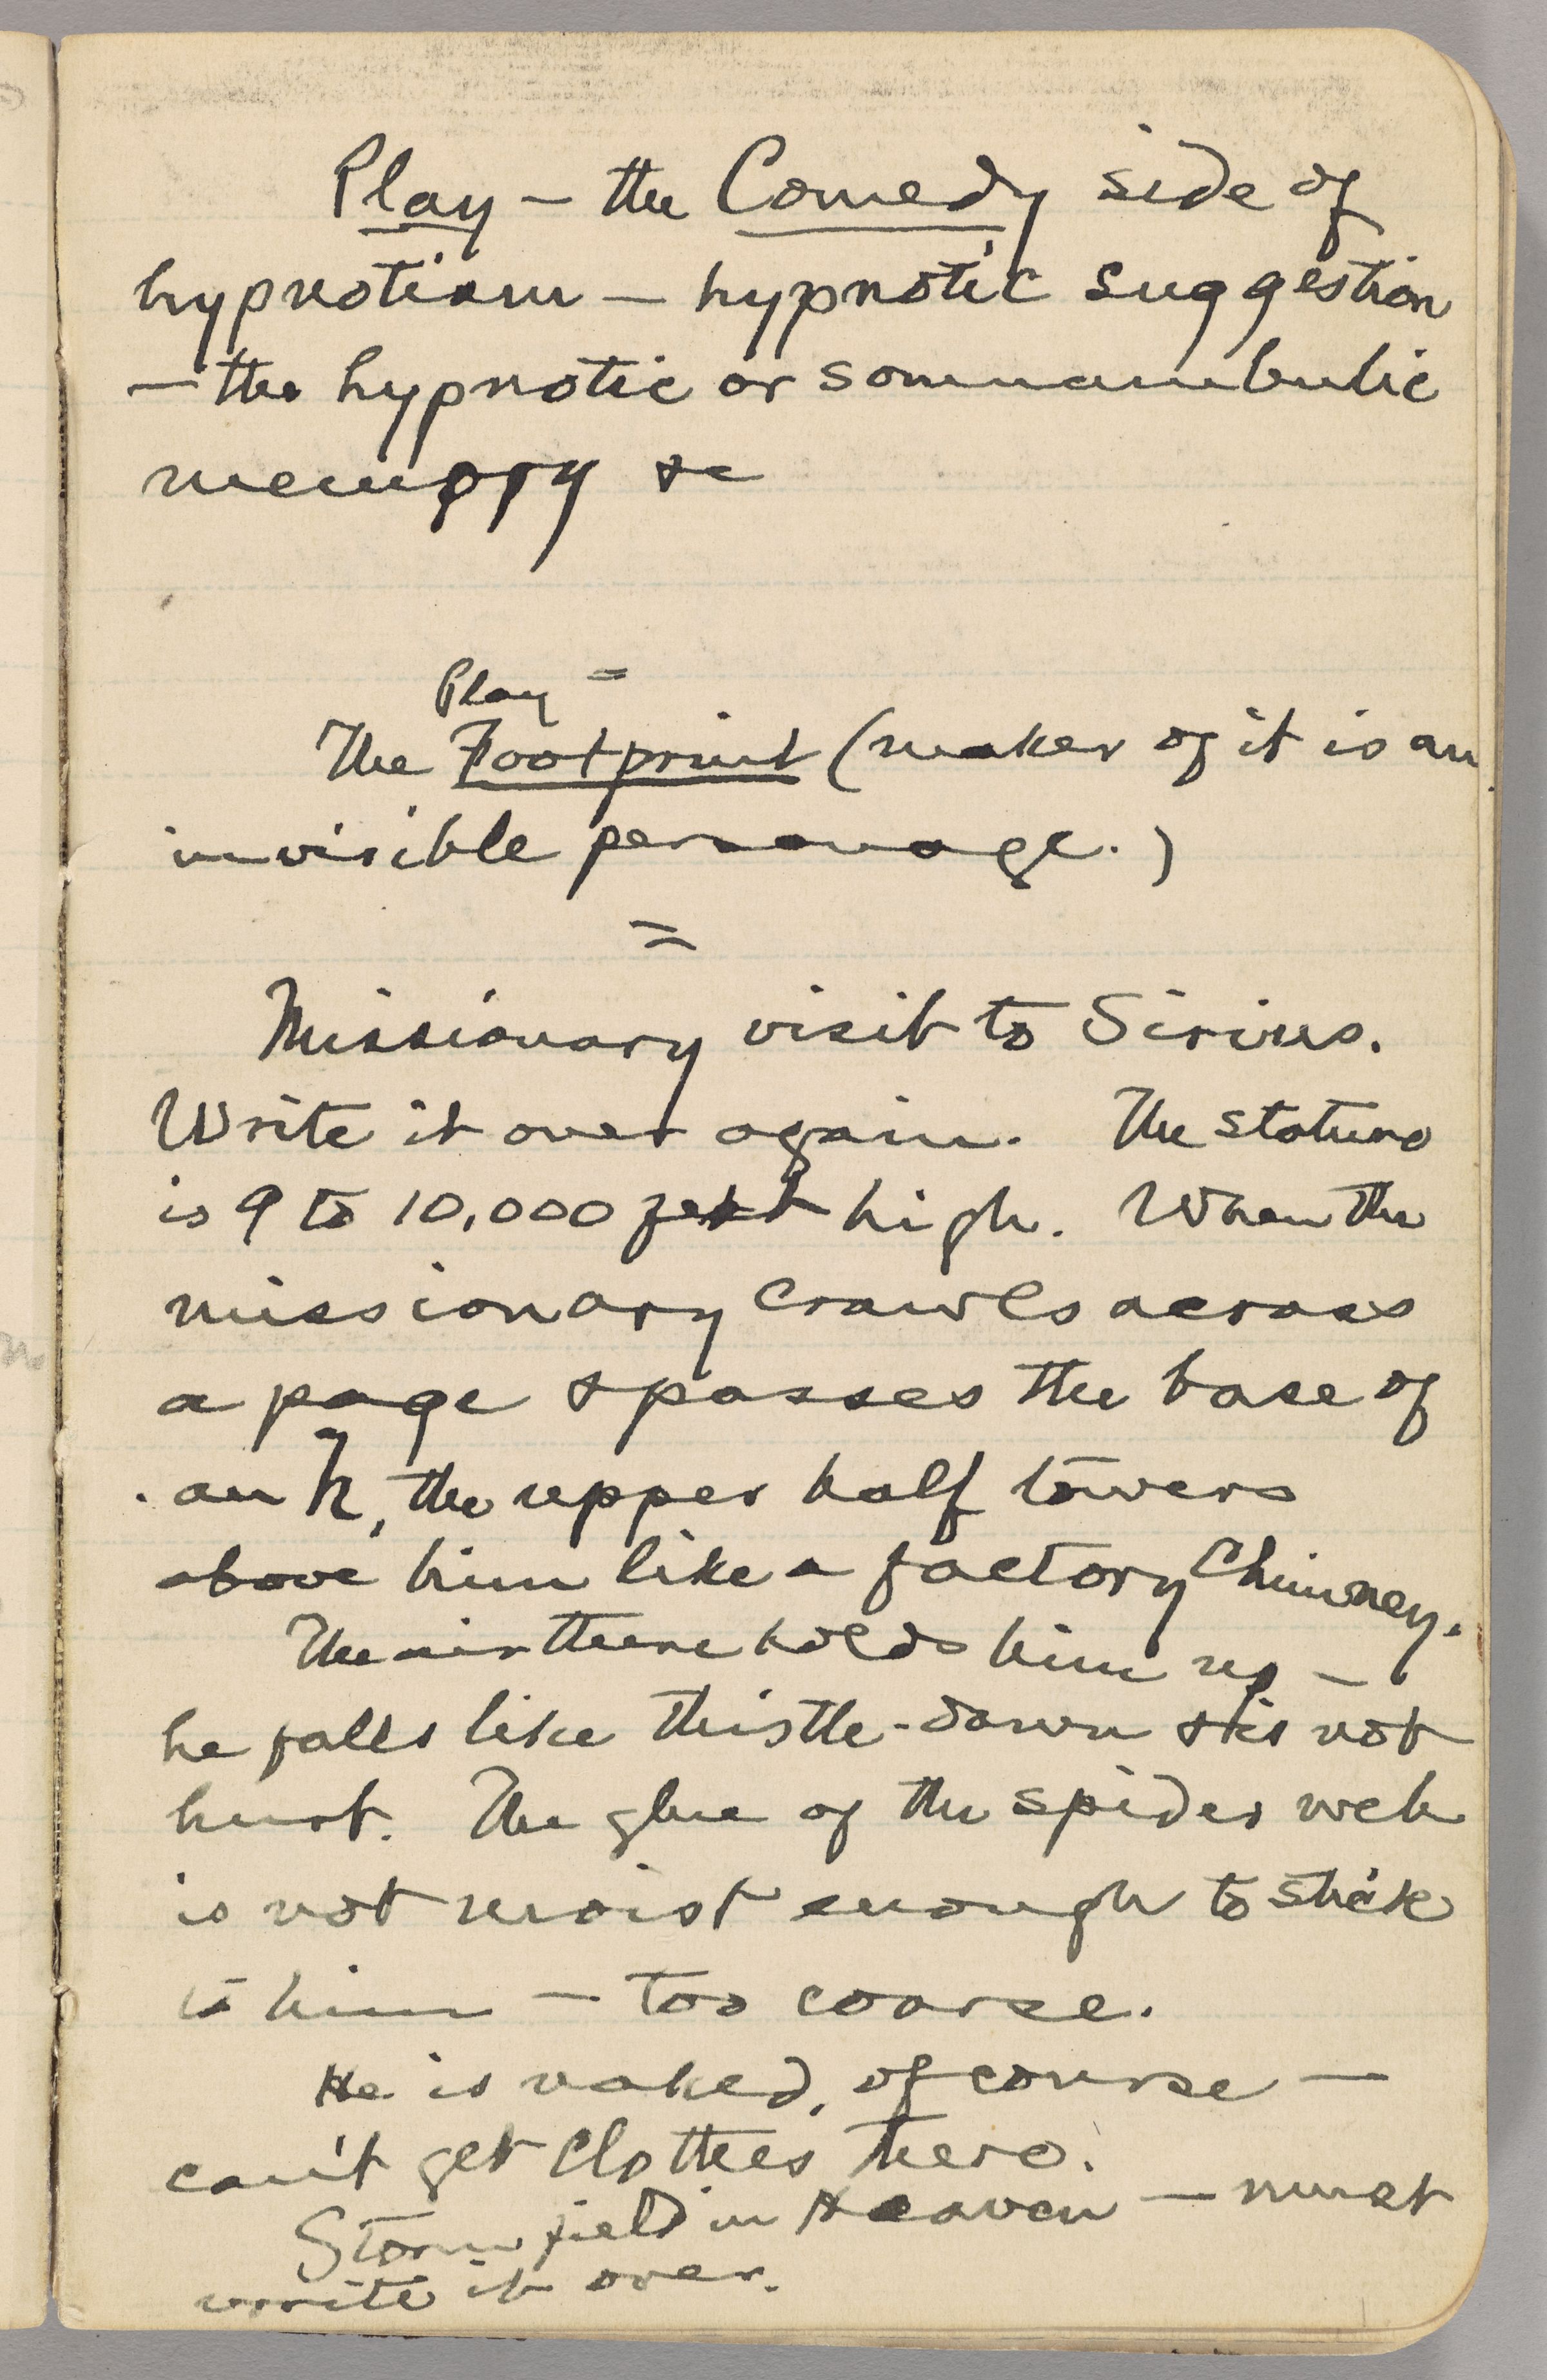 Play – the Comedy side of
hypnotism – hypnotic suggestion
– the hypnotic or somnambulic
memory &c
Play =
The Footprint (maker of it is an
invisible personage.)
=
Missionary visit to Sirius.
Write it over again. The stature
is 9 to 10,000 feet high. When the
missionary crawls across
a page & passes the base of
an h, the upper half towers
above him like a factory chimney.
The air there holds him up –
he falls like thistle-down & is not
hurt. The glue of the spider web
is not moist enough to stick
to him – too coarse.
He is naked, of course –
can't get clothes there.
Stormfield in Heaven – must
write it over.